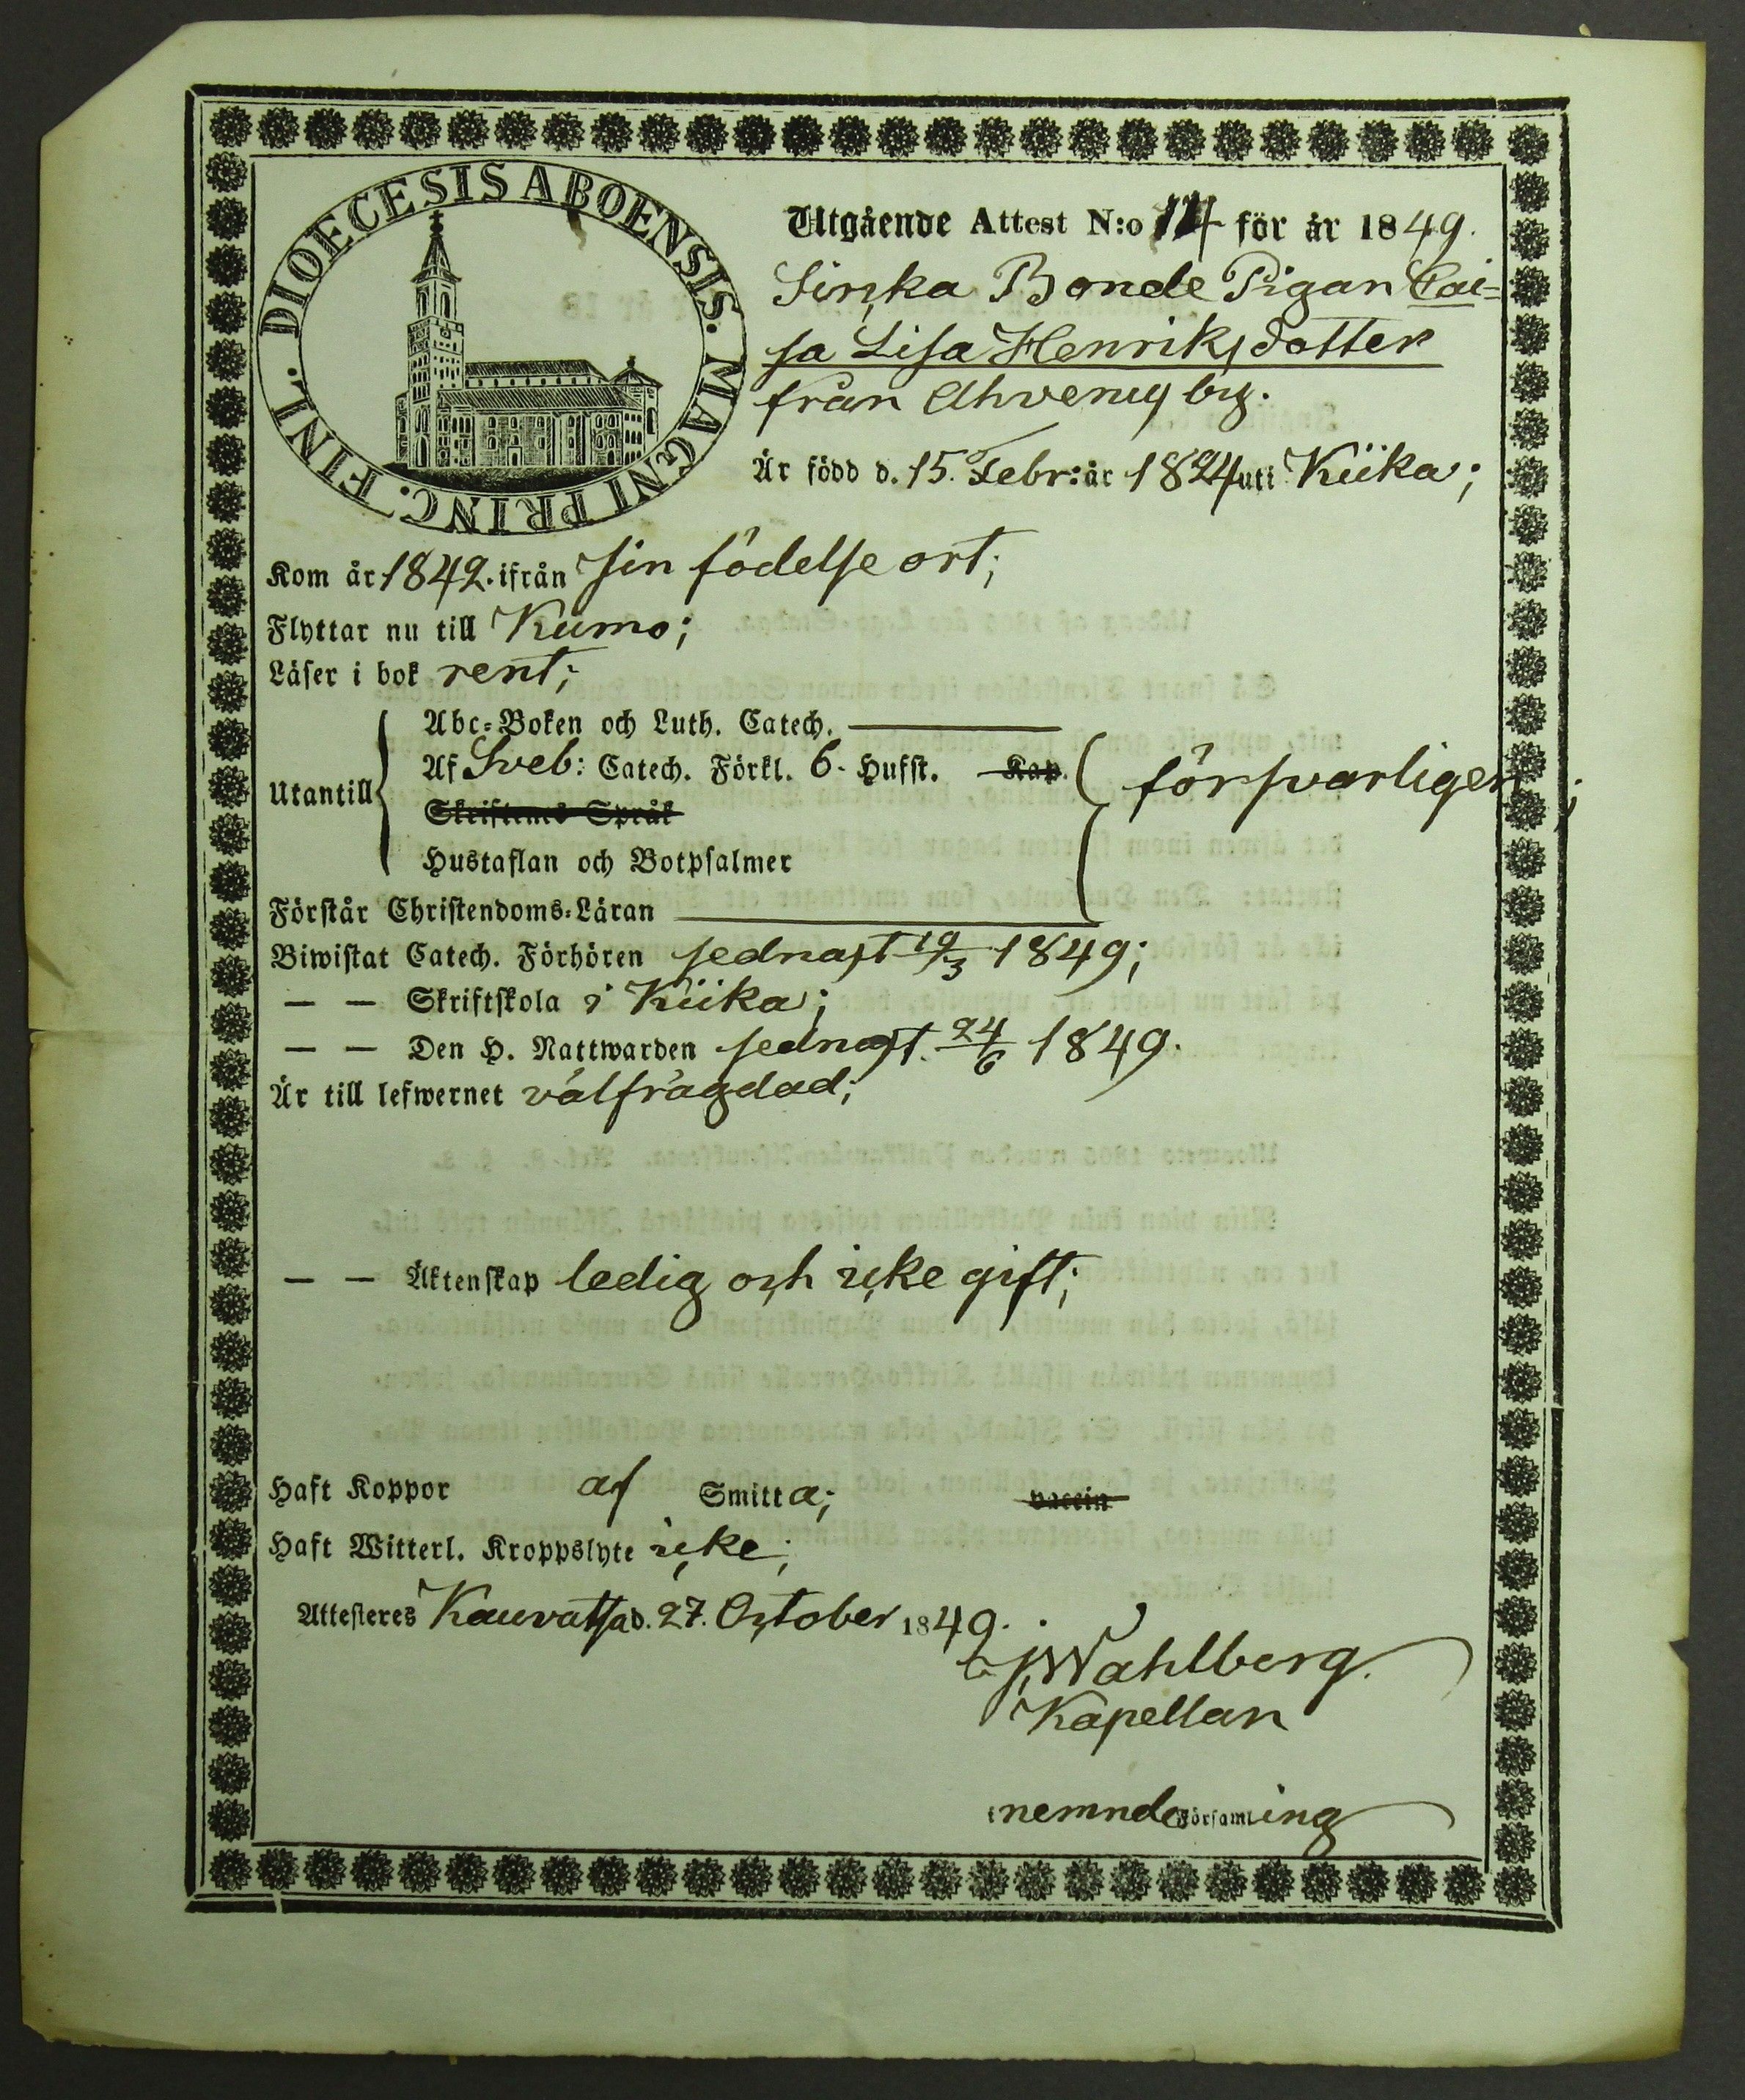 DIOECESIS ABOENSIS. MAGNI PRINC. FINL.
Utgående Attest N:o 14 för år 1849.
Sirka Bonde Pigan Cai-
sa Lisa Henriksdotter
från Ahvenus by.
Är född d. 15. Febr: år 1824 uti Kiika;
Kom år 1842. ifrån sin födelse ort;
Flyttar nu till Kumo;
Läser i bok rent;
Utantill
Abc-Boken och Luth. Catech.
Af Sveb: Catech. Förkl. 6. Hufst. Kap. försvarligen;
Skriftenes Språk
Hustaflan och Botpsalmer
Förstår Christendoms-Läran
Biwistat Catech. Förhören sednast 19/3 1849;
— — Skriftskola i Kiika;
— — Den H. Nattwarden sednast. 24/6 1849.
Är till lefwernet välfrägdad;
— — Äktenskap ledig och icke gift;
Haft Koppor af Smitta; vaccin
Haft Witterl. Kroppslyte icke;
Attesteres Kauvatsa d. 27. October 1849.
Wahlberg.
Kapellan
i nemnde Församling